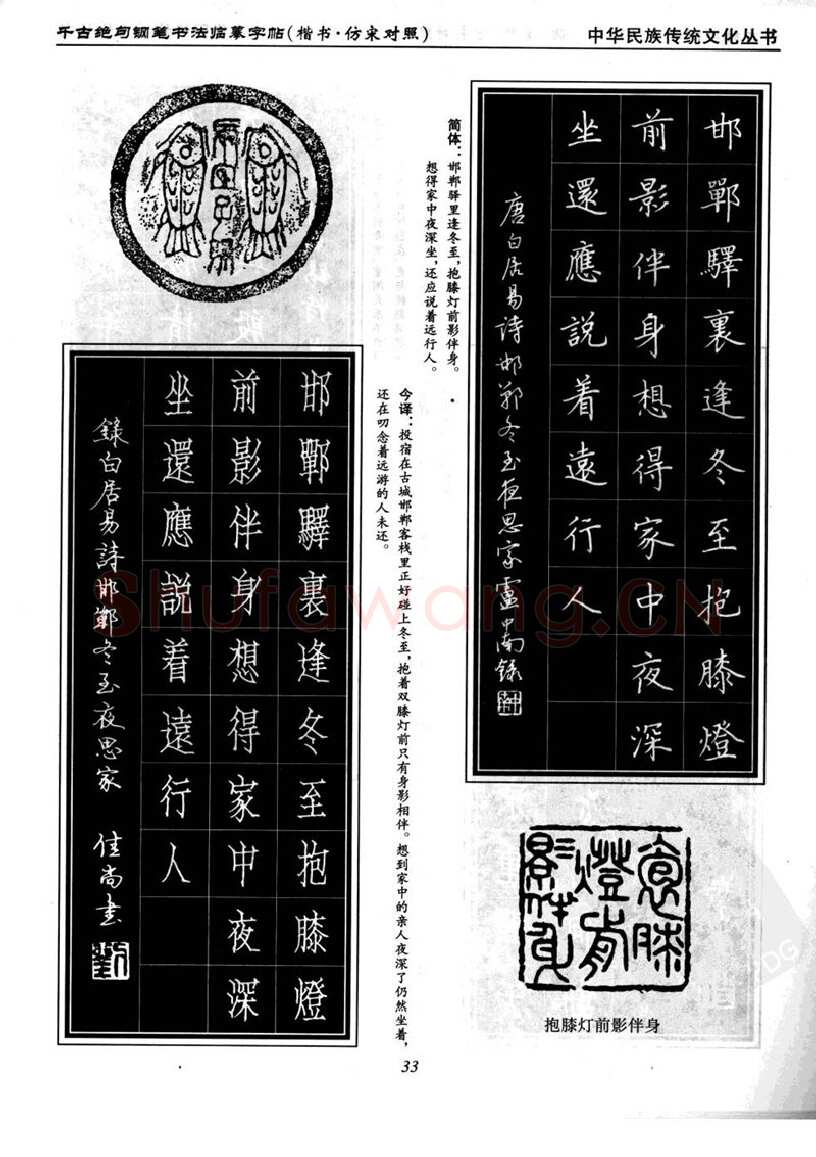 千古绝句钢笔书法临摹字帖(楷书·仿宋对照)
中华民族传统文化丛书
邯鄲驛裏逢冬至抱膝燈
前影伴身想得家中夜深
坐還應説着遠行人
唐白居易詩邯鄲冬至夜思家盧中南録
简体：邯郸驿里逢冬至，抱膝灯前影伴身。
想得家中夜深坐，还应说着远行人。
今译：投宿在古城邯郸客栈里正好碰上冬至，抱着双膝灯前只有身影相伴。想到家中的亲人夜深了仍然坐着，
还在叨念着远游的人未还。
邯鄲驛裏逢冬至抱膝燈
前影伴身想得家中夜深
坐還應説着遠行人
録白居易詩邯鄲冬至夜思家 佳尚書
抱膝燈前影伴身
抱膝灯前影伴身
33
Shufawang.CN
PDG